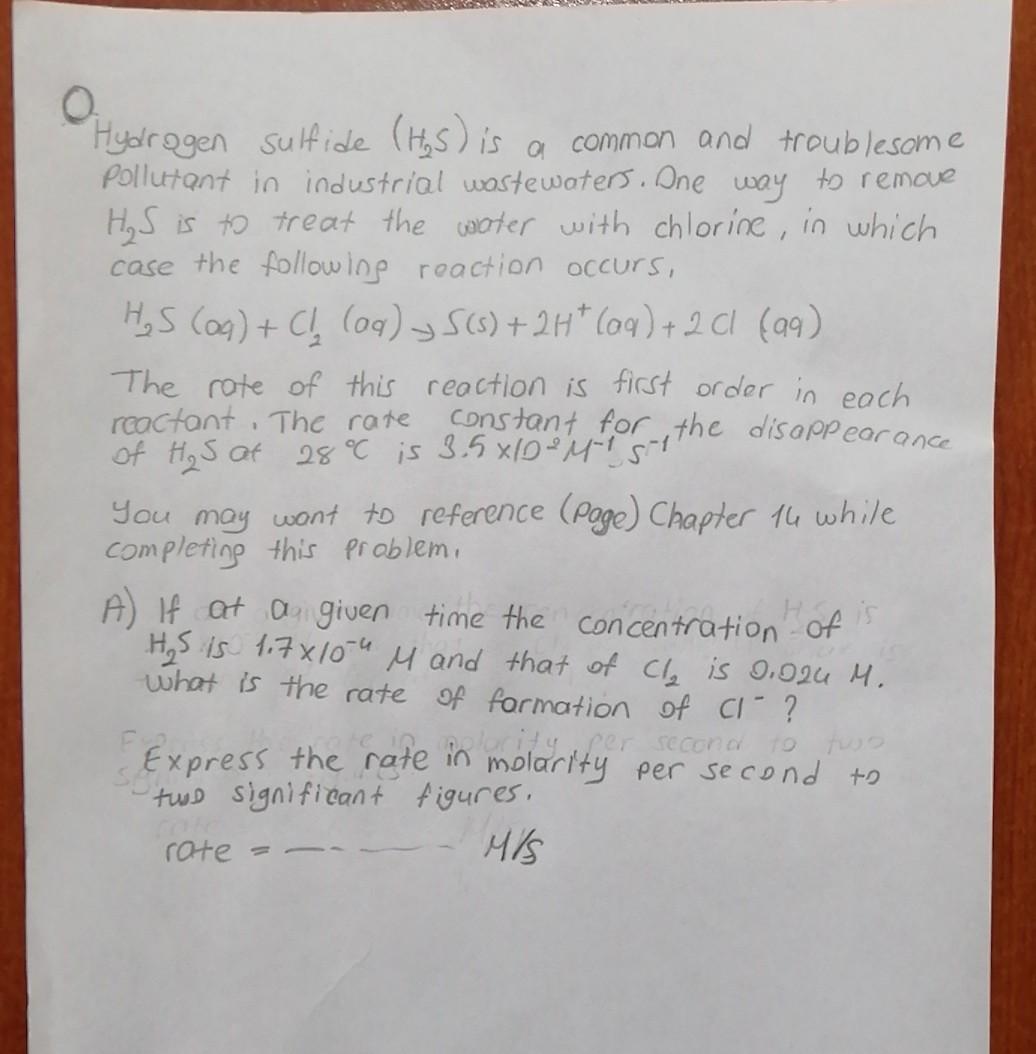 Q.
Hydrogen sulfide (H₂S) is a common and troublesome
pollutant in industrial wastewaters. One way to remove
H₂S is to treat the water with chlorine, in which
case the following reaction occurs,
H₂S (aq) + Cl₂ (aq) → S(s) + 2H⁺ (aq) + 2 Cl (aq)
The rate of this reaction is first order in each
reactant. The rate constant for the disappearance
of H₂S at 28 °C is 3.5 x 10⁻² M⁻¹ s⁻¹
You may want to reference (Page) Chapter 14 while
completing this problem.
A) If at a given time the concentration of
H₂S is 1.7 x 10⁻⁴ M and that of Cl₂ is 0.024 M.
What is the rate of formation of Cl⁻ ?
Express the rate in molarity per second to
two significant figures.
rate = ――――― M/s